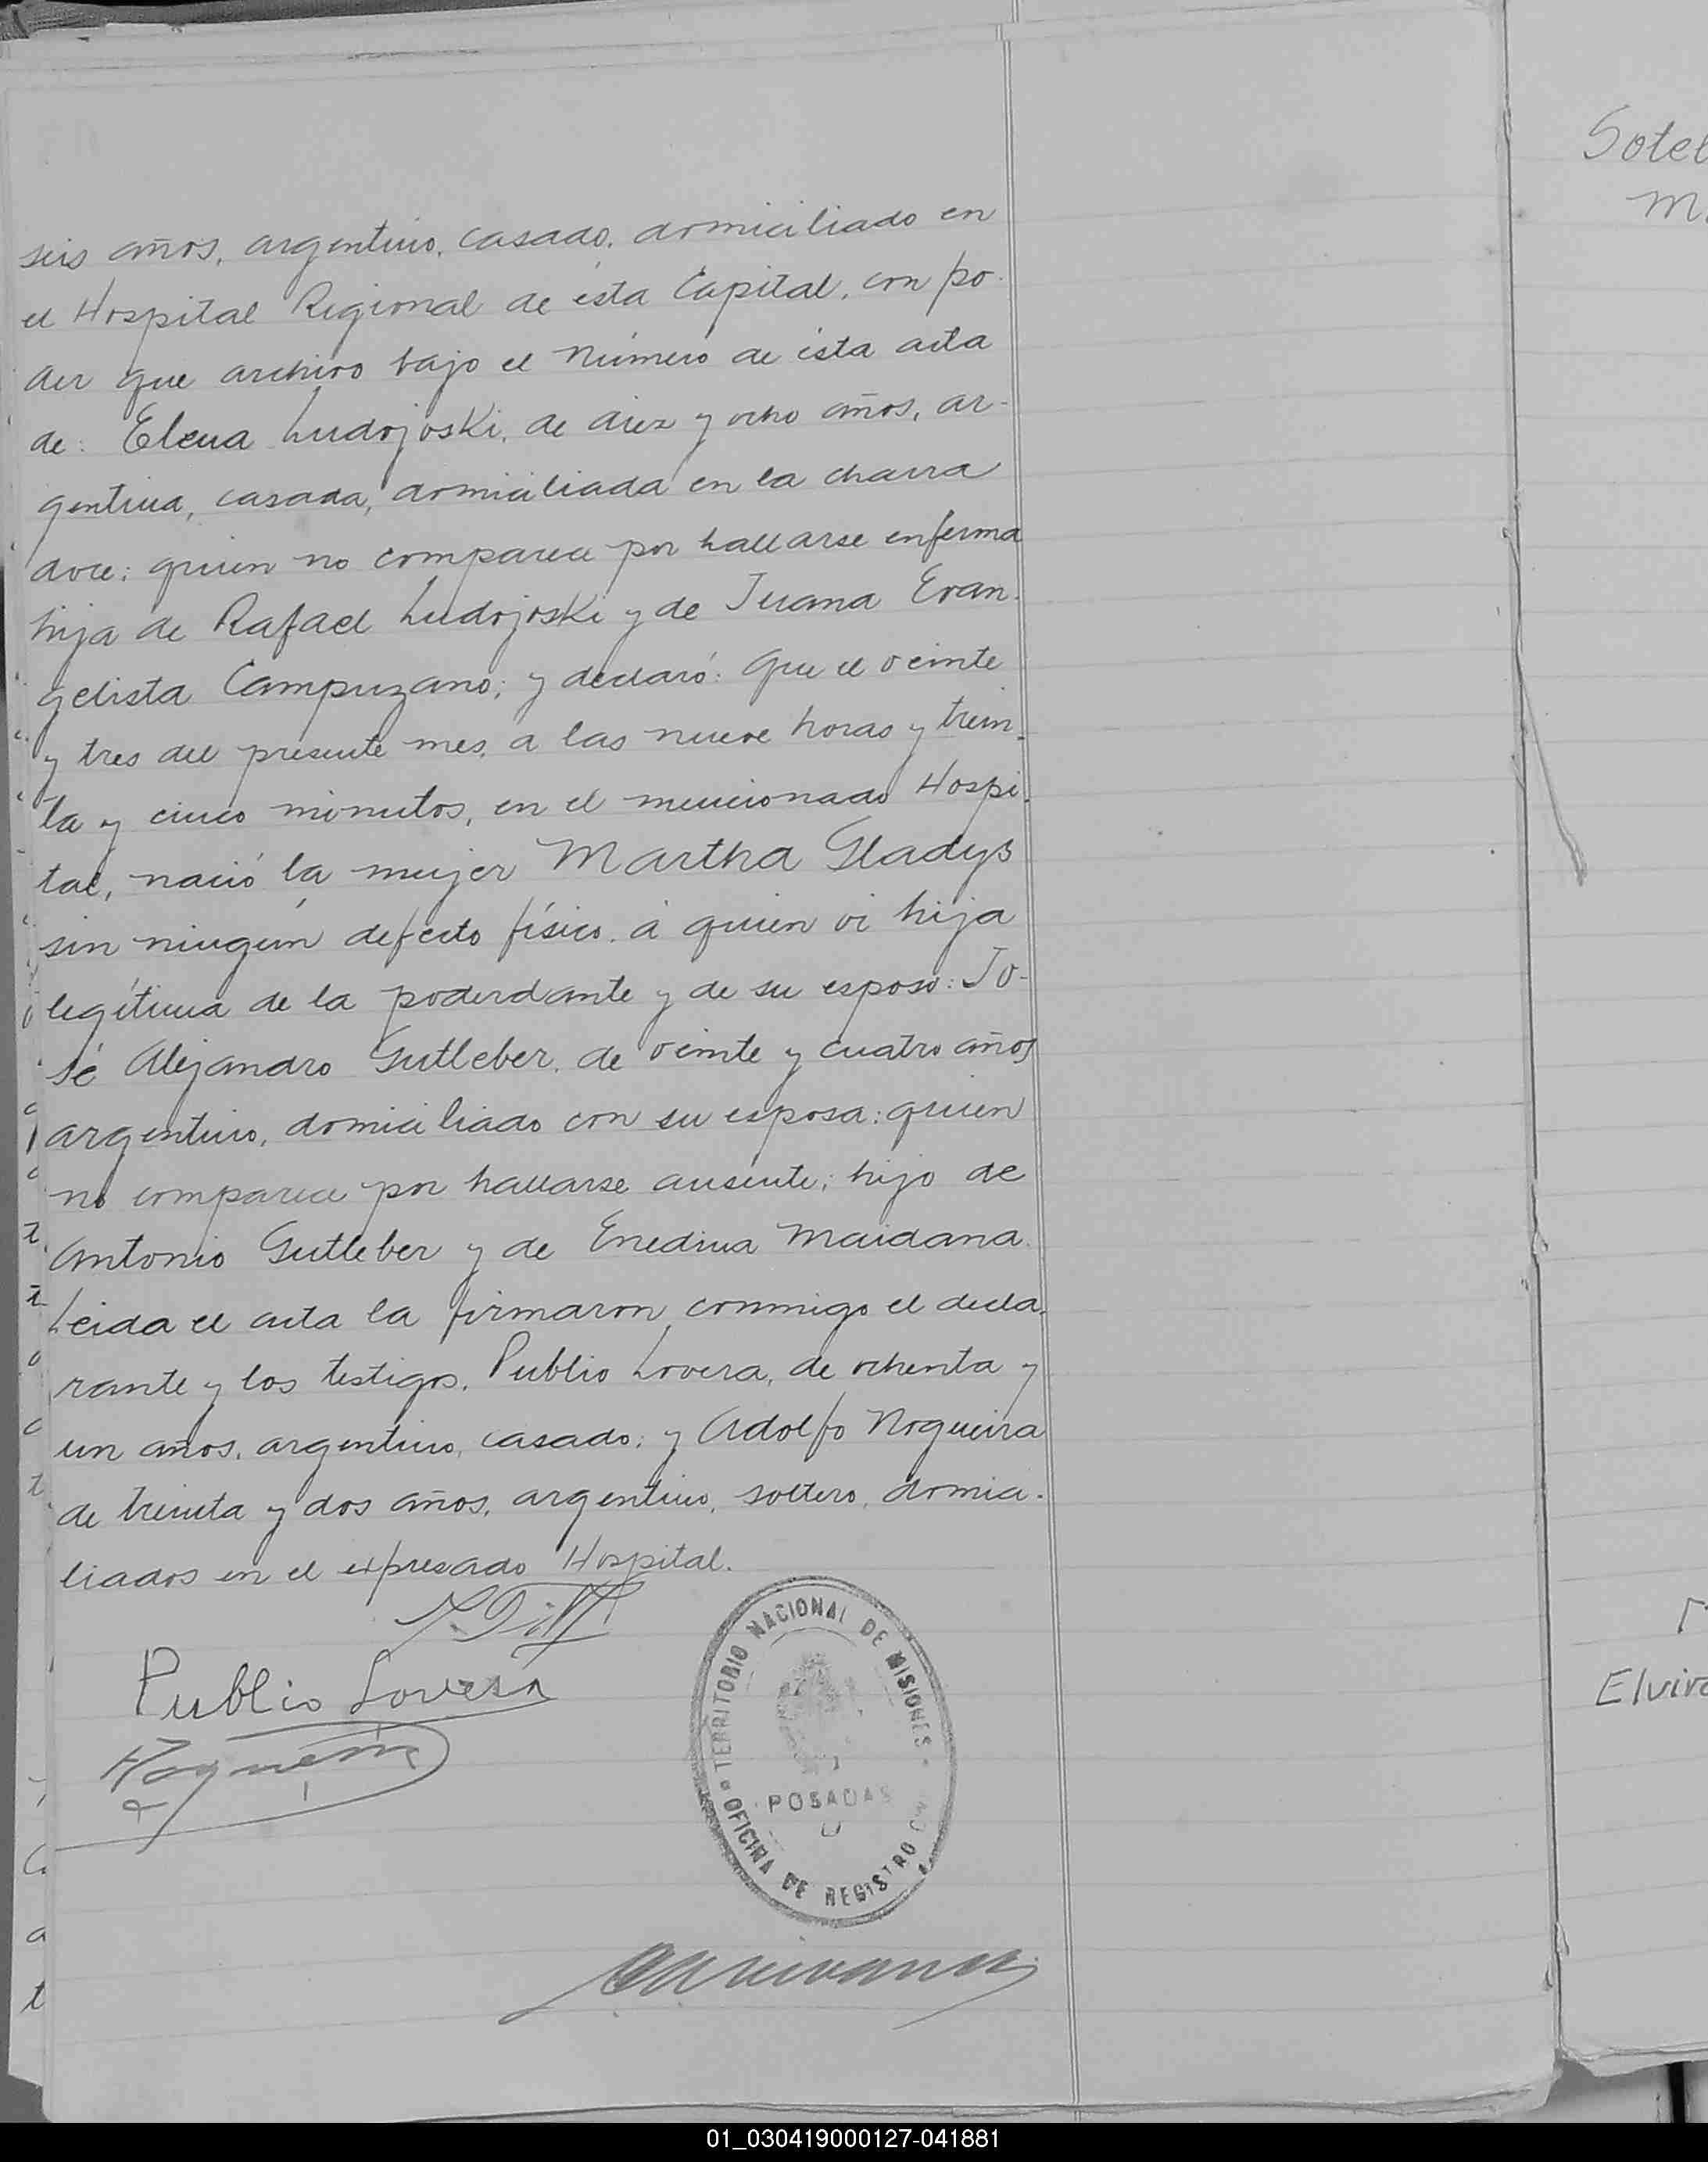 seis años, argentino, casado, domiciliado en
el Hospital Regional de ésta Capital, con po-
der que archivo bajo el número de ésta acta
de: Elena Ludojoski, de diez y ocho años, ar-
gentina, casada, domiciliada en la chacra
doce; quien no comparece por hallarse enferma
hija de Rafael Ludojoski y de Juana Evan-
gelista Campuzano; y declaró: Que el veinte
y tres del presente mes, a las nueve horas y trein-
ta y cinco minutos, en el mencionado Hospi-
tal, nació la mujer Martha Gladys
sin ningún defecto físico, á quien vi hija
legítima de la poderdante y de su esposo: Jo-
sé Alejandro Gutleber, de veinte y cuatro años
argentino, domiciliado con su esposa; quien
no comparece por hallarse ausente; hijo de
Antonio Gutleber y de Enedina Maidana.
Leida el acta la firmaron conmigo el decla-
rante y los testigos, Publio Lovera, de ochenta y
un años, argentino, casado; y Adolfo Nogueira
de treinta y dos años, argentino, soltero, domici-
liados en el expresado Hospital.
Publio Lovera
Nogueira
TERRITORIO NACIONAL DE MISIONES
POSADAS
OFICINA DE REGISTRO
Sotel
M
Elvira
01_030419000127-041881